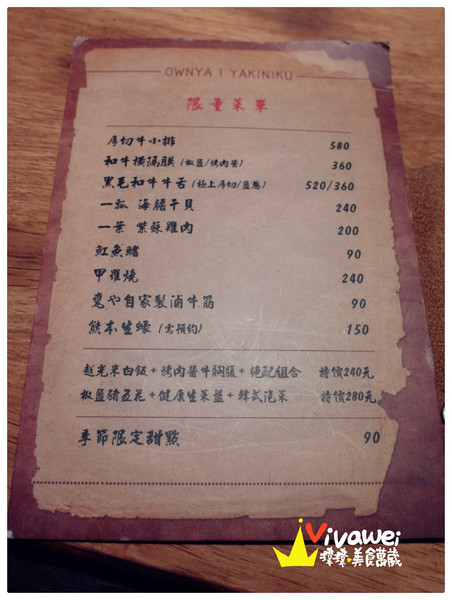 OWNYA | YAKINIKU
限量菜單
厚切牛小排 580
和牛橫隔膜 (椒鹽/烤肉醬) 360
黑毛和牛牛舌 (極上厚切/鹽蔥) 520/360
一瓢 海膽干貝 240
一葉 紫蘇雞肉 200
魟魚鰭 90
甲羅燒 240
竟や自家製滷牛筋 90
熊本生蠔 (需預約) 150
越光米白飯+烤肉醬牛胸腹+絕配組合 特價240元
椒鹽豬五花+健康生菜盤+韓式泡菜 特價280元
季節限定甜點 90
Vivawei
美食蕆